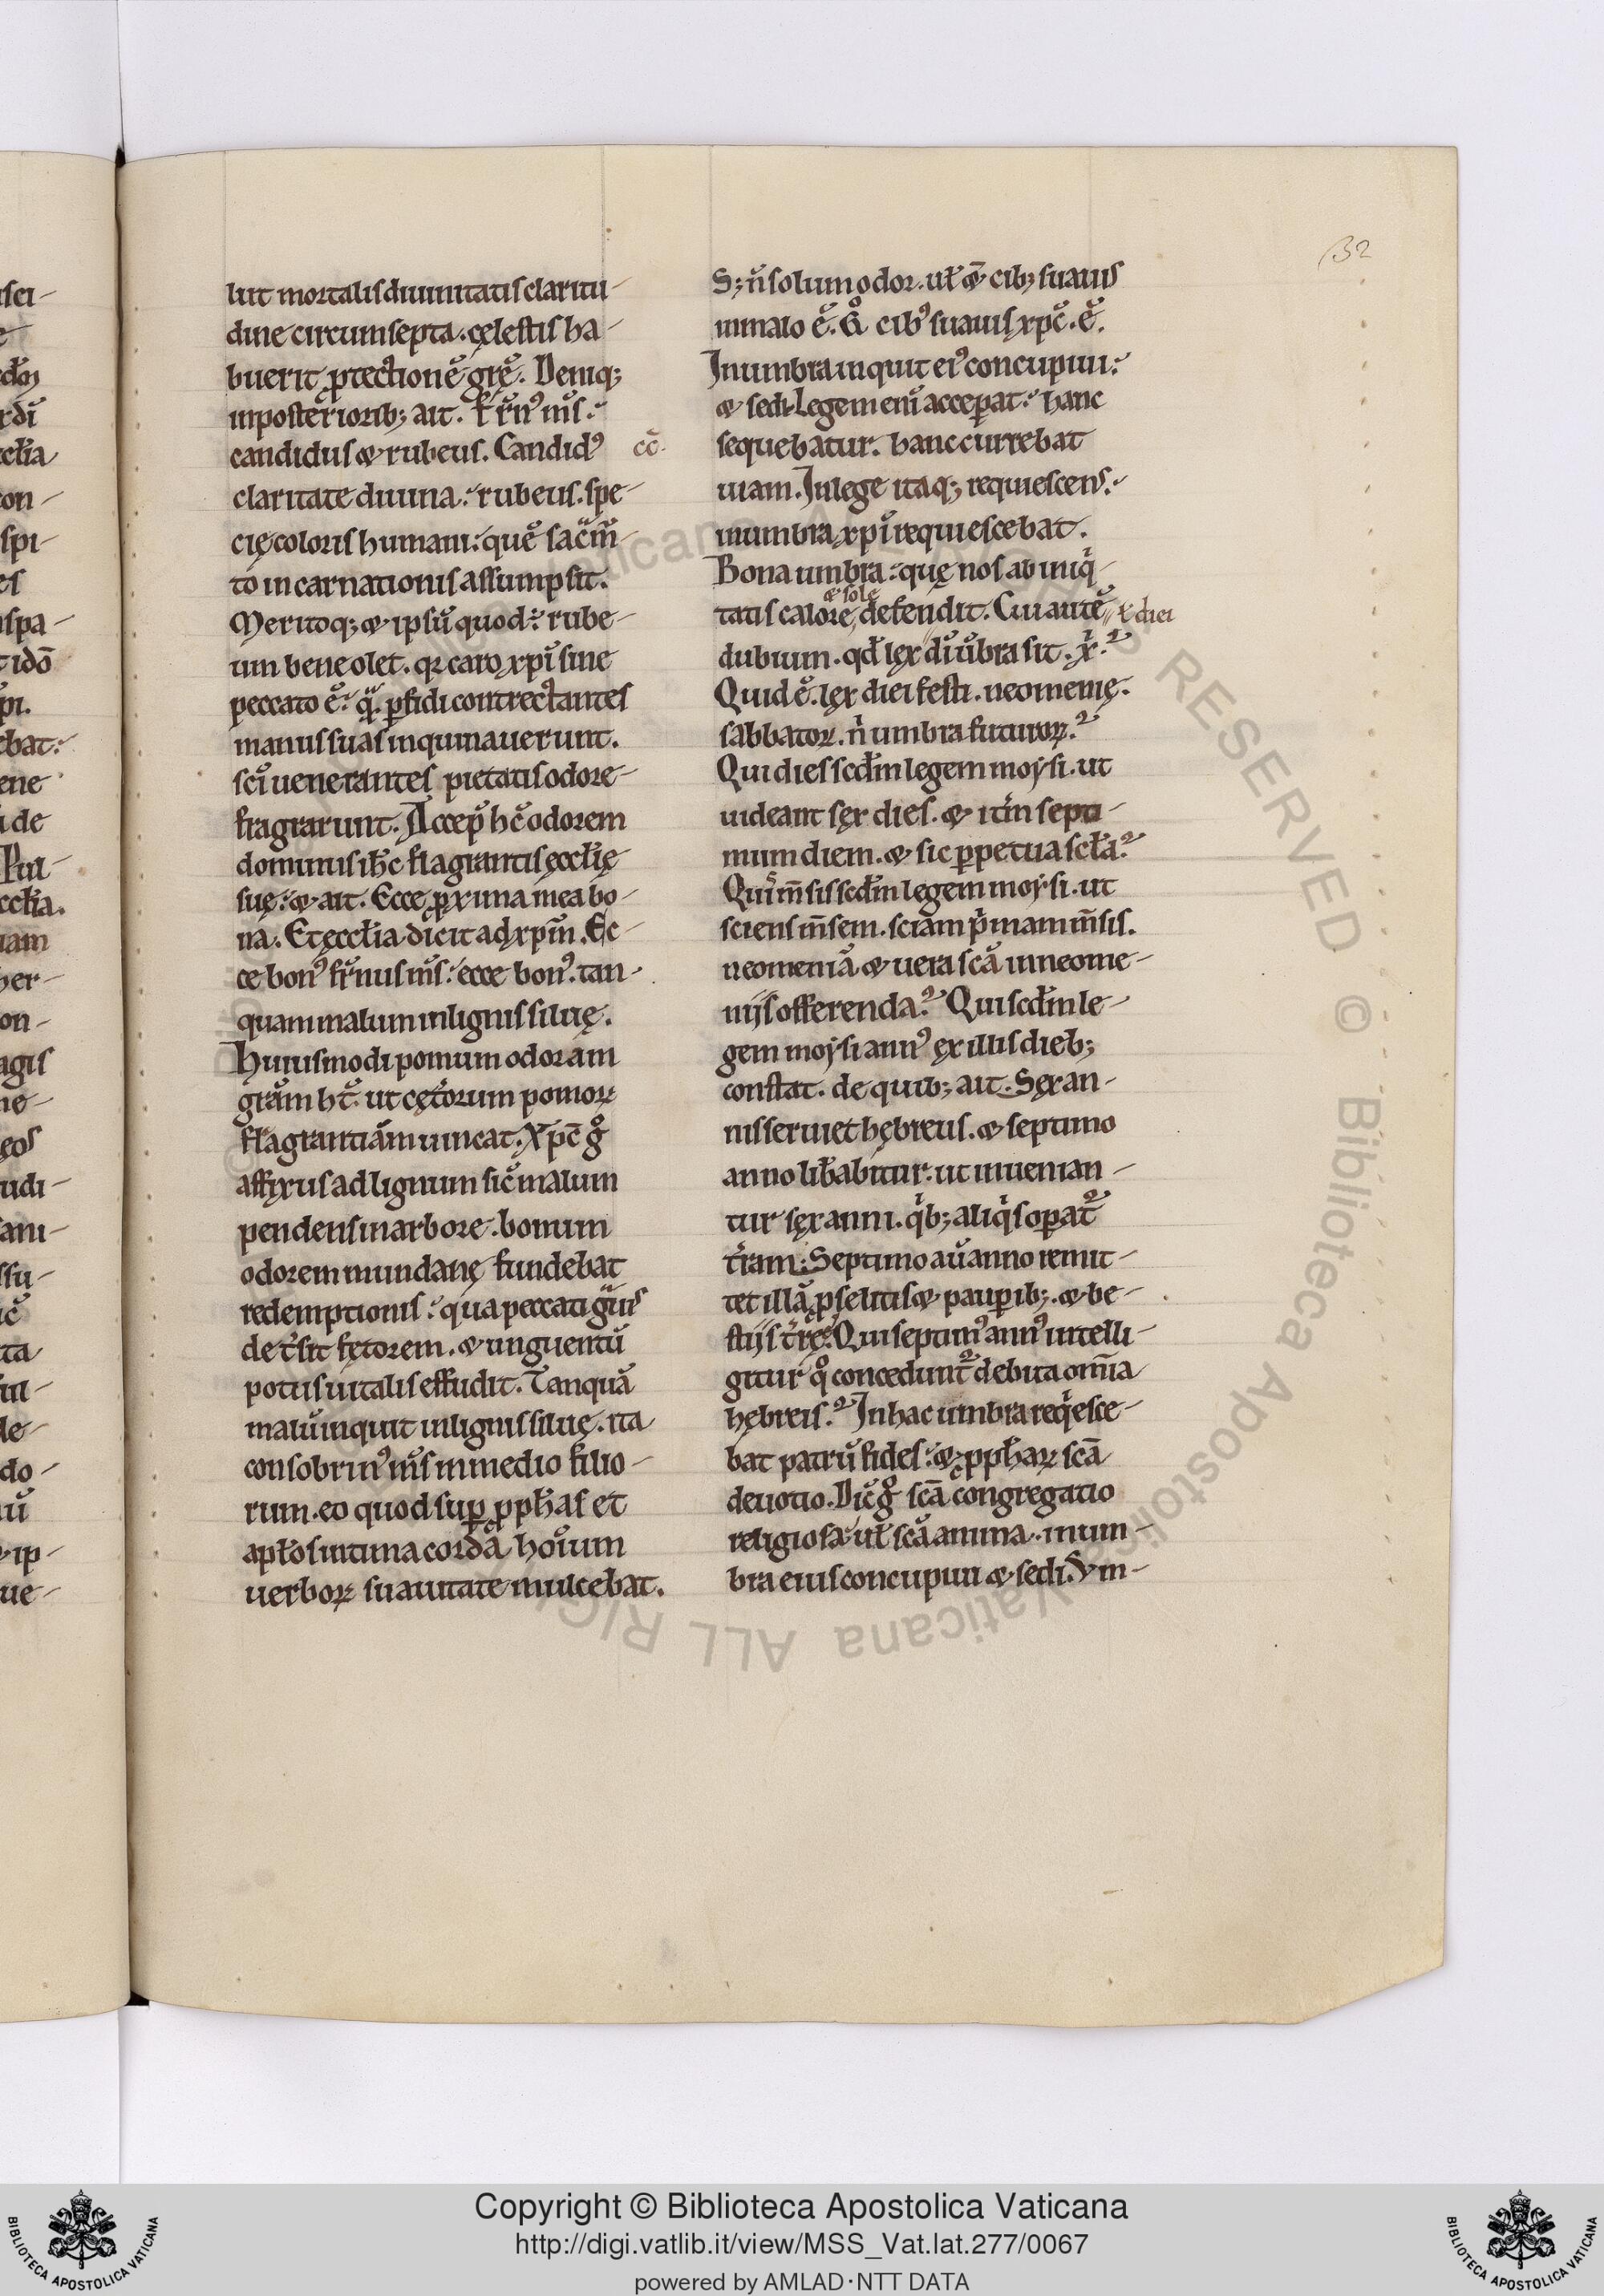 32
lut mortalis diuinitatis claritu-
dine circumsepta. cęlestis ha-
buerit ꝓtectionē grę̄. Deniq;
inposteriorib; ait. Fr̄n᾽ m̄s.
candidus & rubeus. Candid᾽
cō.
claritate diuina. rubeus. spe-
cię coloris humani. quē sac̄m̄-
to incarnationis assumpsit.
Meritoq; & ipsū quod rube-
um bene olet. qꝛ caro xp̄i sine
peccato ē. q̄. ꝑfidi contrectantes
manus suas inquinauerunt.
sc̄i uenerantes pietatis odore-
fragrarunt. Accep̄ hc̄ odorem
dominus ih̄c flagrantis ęccl̄ię
suę. & ait. Ecce ꝓxima mea bo-
na. Et ęccl̄ia dicit ad xp̄m̄. Ec-
ce bon᾽ fr̄nus m̄s. ecce bon᾽. tan-
quam malum in lignis siluę.
Huiusmodi pomum odoram
grām ht̄. ut cętorum pomoꝝ
flagrantiām uincat. Xp̄c̄ gͦ
affixus ad lignum sic̄ malum
pendens in arbore. bonum
odorem mundanę fundebat
redemptionis. qua peccati gͣuis
det᾽sit fętorem. & unguentū
potus uitalis effudit. Tanquā
malū inquit in lignis siluę. ita
consobrin᾽ m̄s in medio filio-
rum. eo quod suꝑ ꝓph̄as et
apl̄os intima corda hoīum
uerboꝝ suauitate mulcebat.
S; n̄ solum odor. ul̄ & cib; suauis
in malo ē. Gͦ cib᾽ suauis xp̄c̄. ē.
In umbra inquit ei᾽ concupiui.
& sedi. Legem enī acceꝑat. hanc
sequebatur. hanc currebat
uiam. In lege itaq; requiescens.
in umbra xp̄i requiescebat.
Bona umbra. quę nos ab iniqͥ-
& sole
tatis calore defendit. Cui autē
ł diei
dubium. qd̄ lex diū ūbra sit. xͥ.
Quid ē. lex diei festi. neomenię.
sabbatoꝝ. nͥ umbra futuroꝝ.
Qui dies scd̄m legem moysi. ut
uideant sex dies. & it̄m septi-
mum diem. & sic ꝑpetua scl̄a.
Qui m̄sis scd̄m legem moysi. ut
sciens m̄sem. sciam pͥmam m̄sis.
neomeniā & uera scā in neome-
nijs offerenda. Qui scd̄m le-
gem moysi ann᾽ ex illis dieb;
constat. de quib; ait. Sex an-
nis seruiet hębreus. & septimo
anno lib̄abitur. ut inuenian-
tur sex anni. qͥb; aliqͥs oꝑat᾽
t᾽ram. Septimo aū anno remit-
tet illā ꝓselitis & pauꝑib;. & be-
stijs t᾽rę. Qui septim᾽ ann᾽ intelli-
gitur qͦ concedunt᾽ debita om̄ia
hębreis. In hac umbra reqͥesce-
bat patrū fides. & ꝓph̄aꝝ scā
deuotio. Dic̄ gͦ scā congregatio
religiosa ul̄ scā anima. in um-
bra eius concupiui & sedi. Vm-
Copyright © Biblioteca Apostolica Vaticana
http://digi.vatlib.it/view/MSS_Vat.lat.277/0067
powered by AMLAD·NTT DATA